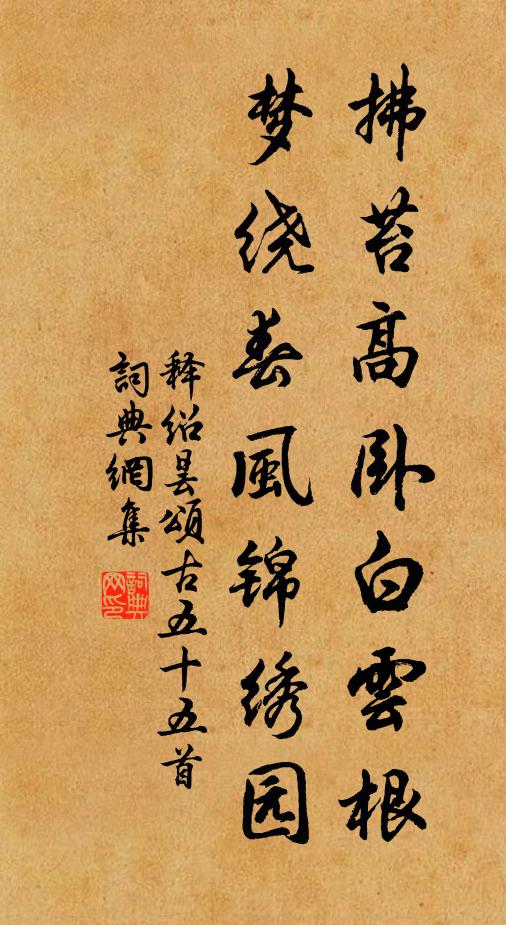 拂苔高卧白雲根
梦绕春風锦绣园
释绍昙頌古五十五首
詞典網集
詞典网印